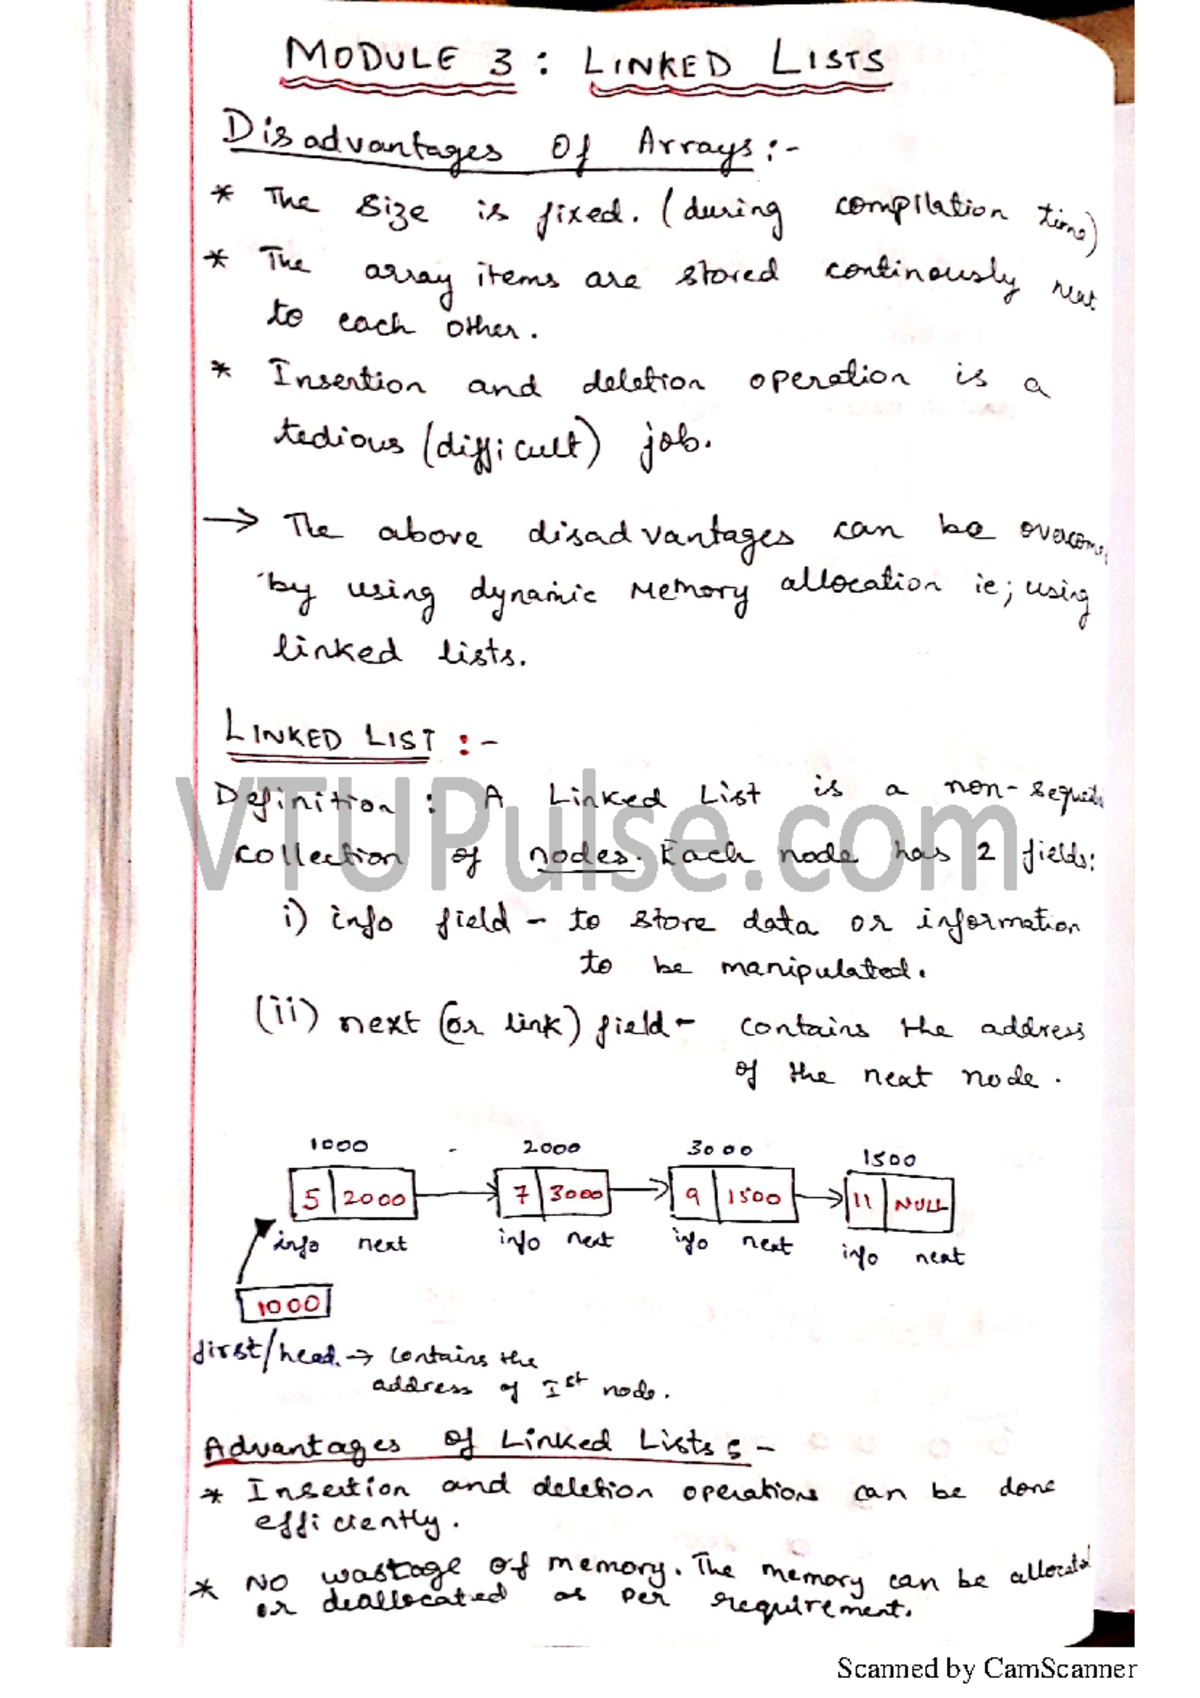 MODULE 3 : LINKED LISTS
Disadvantages Of Arrays :-
* The size is fixed. (during compilation time)
* The array items are stored continously next
to each other.
* Insertion and deletion operation is a
tedious (difficult) job.
→ The above disadvantages can be overcome
by using dynamic memory allocation ie; using
linked lists.
LINKED LIST :-
Definition : A Linked List is a non-
collection of nodes. Each node has 2 fields:
i) info field - to store data or information
to be manipulated.
(ii) next (or link) field - contains the address
of the next node.
1000 2000 3000 1500
5 2000 7 3000 9 1500 11 NULL
info next info next info next info next
1000
first/head → contains the
address of Ist node.
Advantages Of Linked Lists :-
* Insertion and deletion operations can be done
efficiently.
* No wastage of memory. The memory can be allocated
or deallocated as per requirement.
VTUPulse.com
Scanned by CamScanner